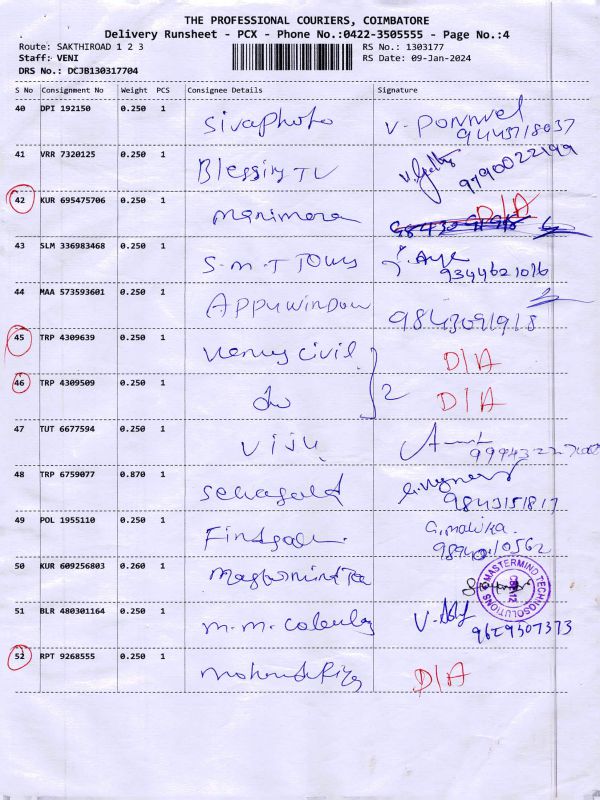 THE PROFESSIONAL COURIERS, COIMBATORE
Delivery Runsheet - PCX - Phone No.:0422-3505555 - Page No.:4
Route: SAKTHIROAD 1 2 3 RS No.: 1303177
Staff: VENI RS Date: 09-Jan-2024
DRS No.: DCJB130317704
S No Consignment No Weight PCS Consignee Details Signature
40 DPI 192150 0.250 1 Sivaphoto V. PONNVEL
9443718037
41 VRR 7320125 0.250 1 Blessing TV
9790022199
42 KUR 695475706 0.250 1 Manimara D/A
43 SLM 336983468 0.250 1 S.M.T TOURS
9344621016
44 MAA 573593601 0.250 1 Appuwindow 9843091918
45 TRP 4309639 0.250 1 Venus civil D/A
46 TRP 4309509 0.250 1 do 2 D/A
47 TUT 6677594 0.250 1 Viju
48 TRP 6759077 0.870 1
9843151817
49 POL 1955110 0.250 1 G. malika.
9894010562
50 KUR 609256803 0.260 1 MASTERMIND TECHNOSOLUTIONS
51 BLR 480301164 0.250 1 M.M.
9629507373
52 RPT 9268555 0.250 1 D/A